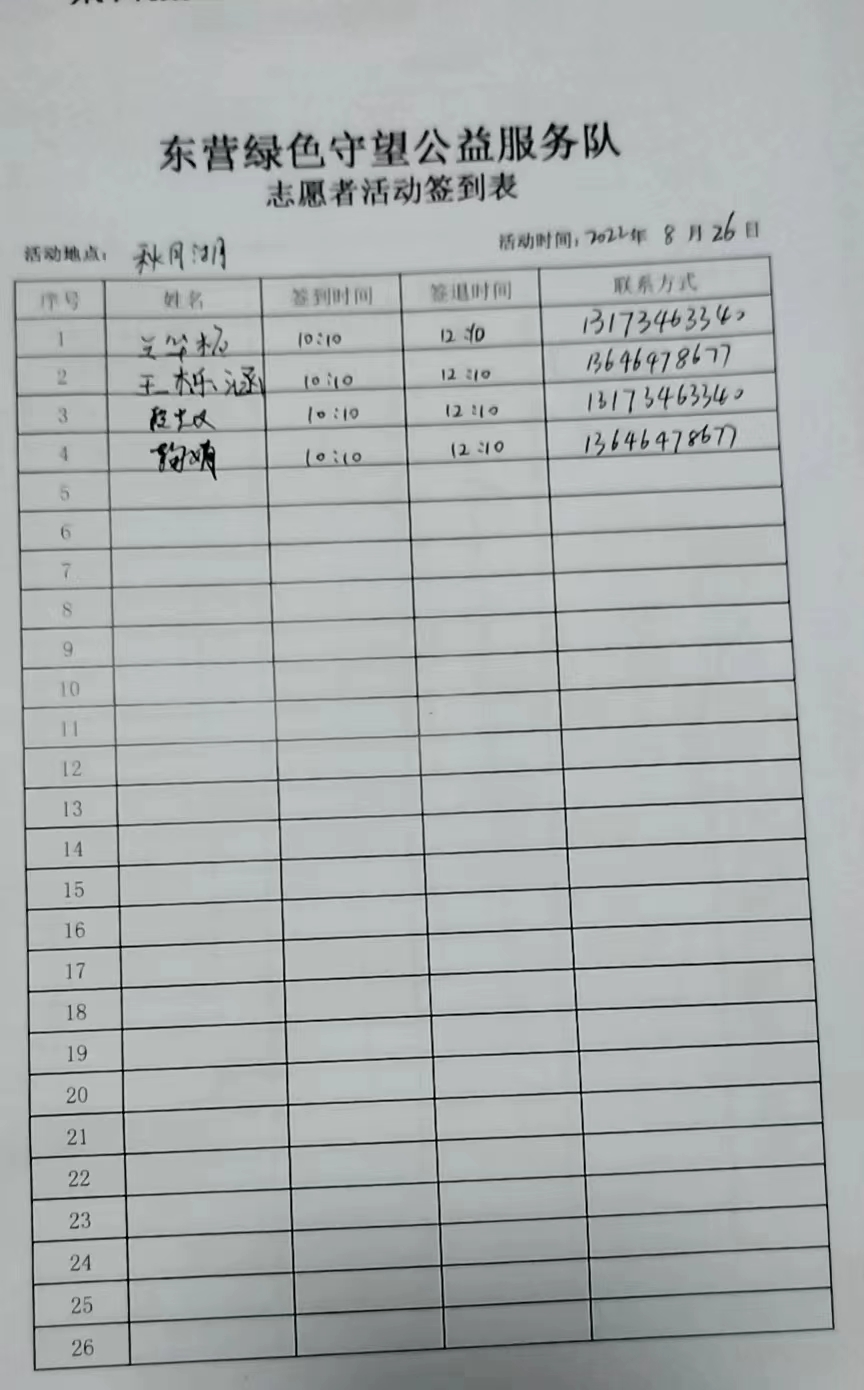 东营绿色守望公益服务队
志愿者活动签到表
活动地点: 秋月湖 活动时间: 2022年 8月26日
序号 姓名 签到时间 签退时间 联系方式
1 10:10 12:10 13173463340
2 王栎涵 10:10 12:10 13646478677
3 10:10 12:10 13173463340
4 10:10 12:10 13646478677
5
6
7
8
9
10
11
12
13
14
15
16
17
18
19
20
21
22
23
24
25
26